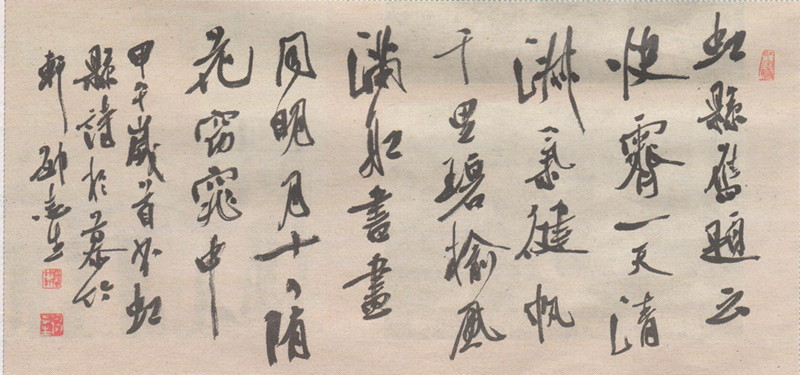 虹縣舊題云
快霽一天清
淑氣健帆
千里碧榆風
滿舡書畫
同明月十日隋
花窈窕中
甲午歲首书虹
縣詩於慕竹
軒邵